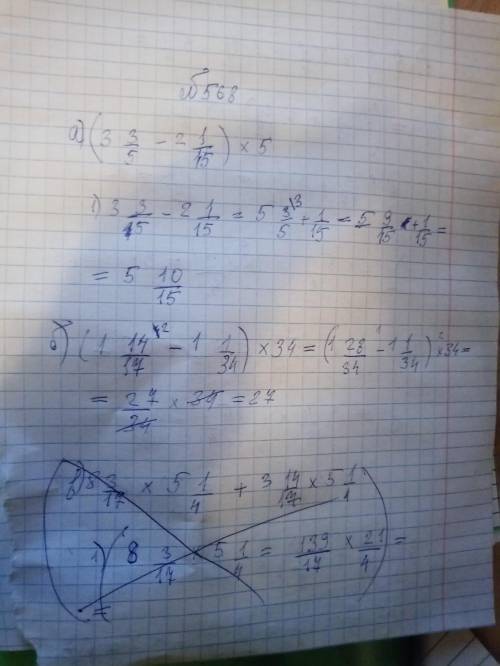 № 568
а) (3 3/5 - 2 1/15) × 5
1) 3 3/15 - 2 1/15 = 5 3/5 \3 + 1/15 = 5 9/15 + 1/15 =
= 5 10/15
б) (1 14/17 \2 - 1 1/34) × 34 = (1 28/34 - 1 1/34) × 34 =
= 27/34 × 34 = 27
в) 8 3/17 × 5 1/4 + 3 14/17 × 5 1/4
1) 8 3/17 · 5 1/4 = 139/17 × 21/4 =
=